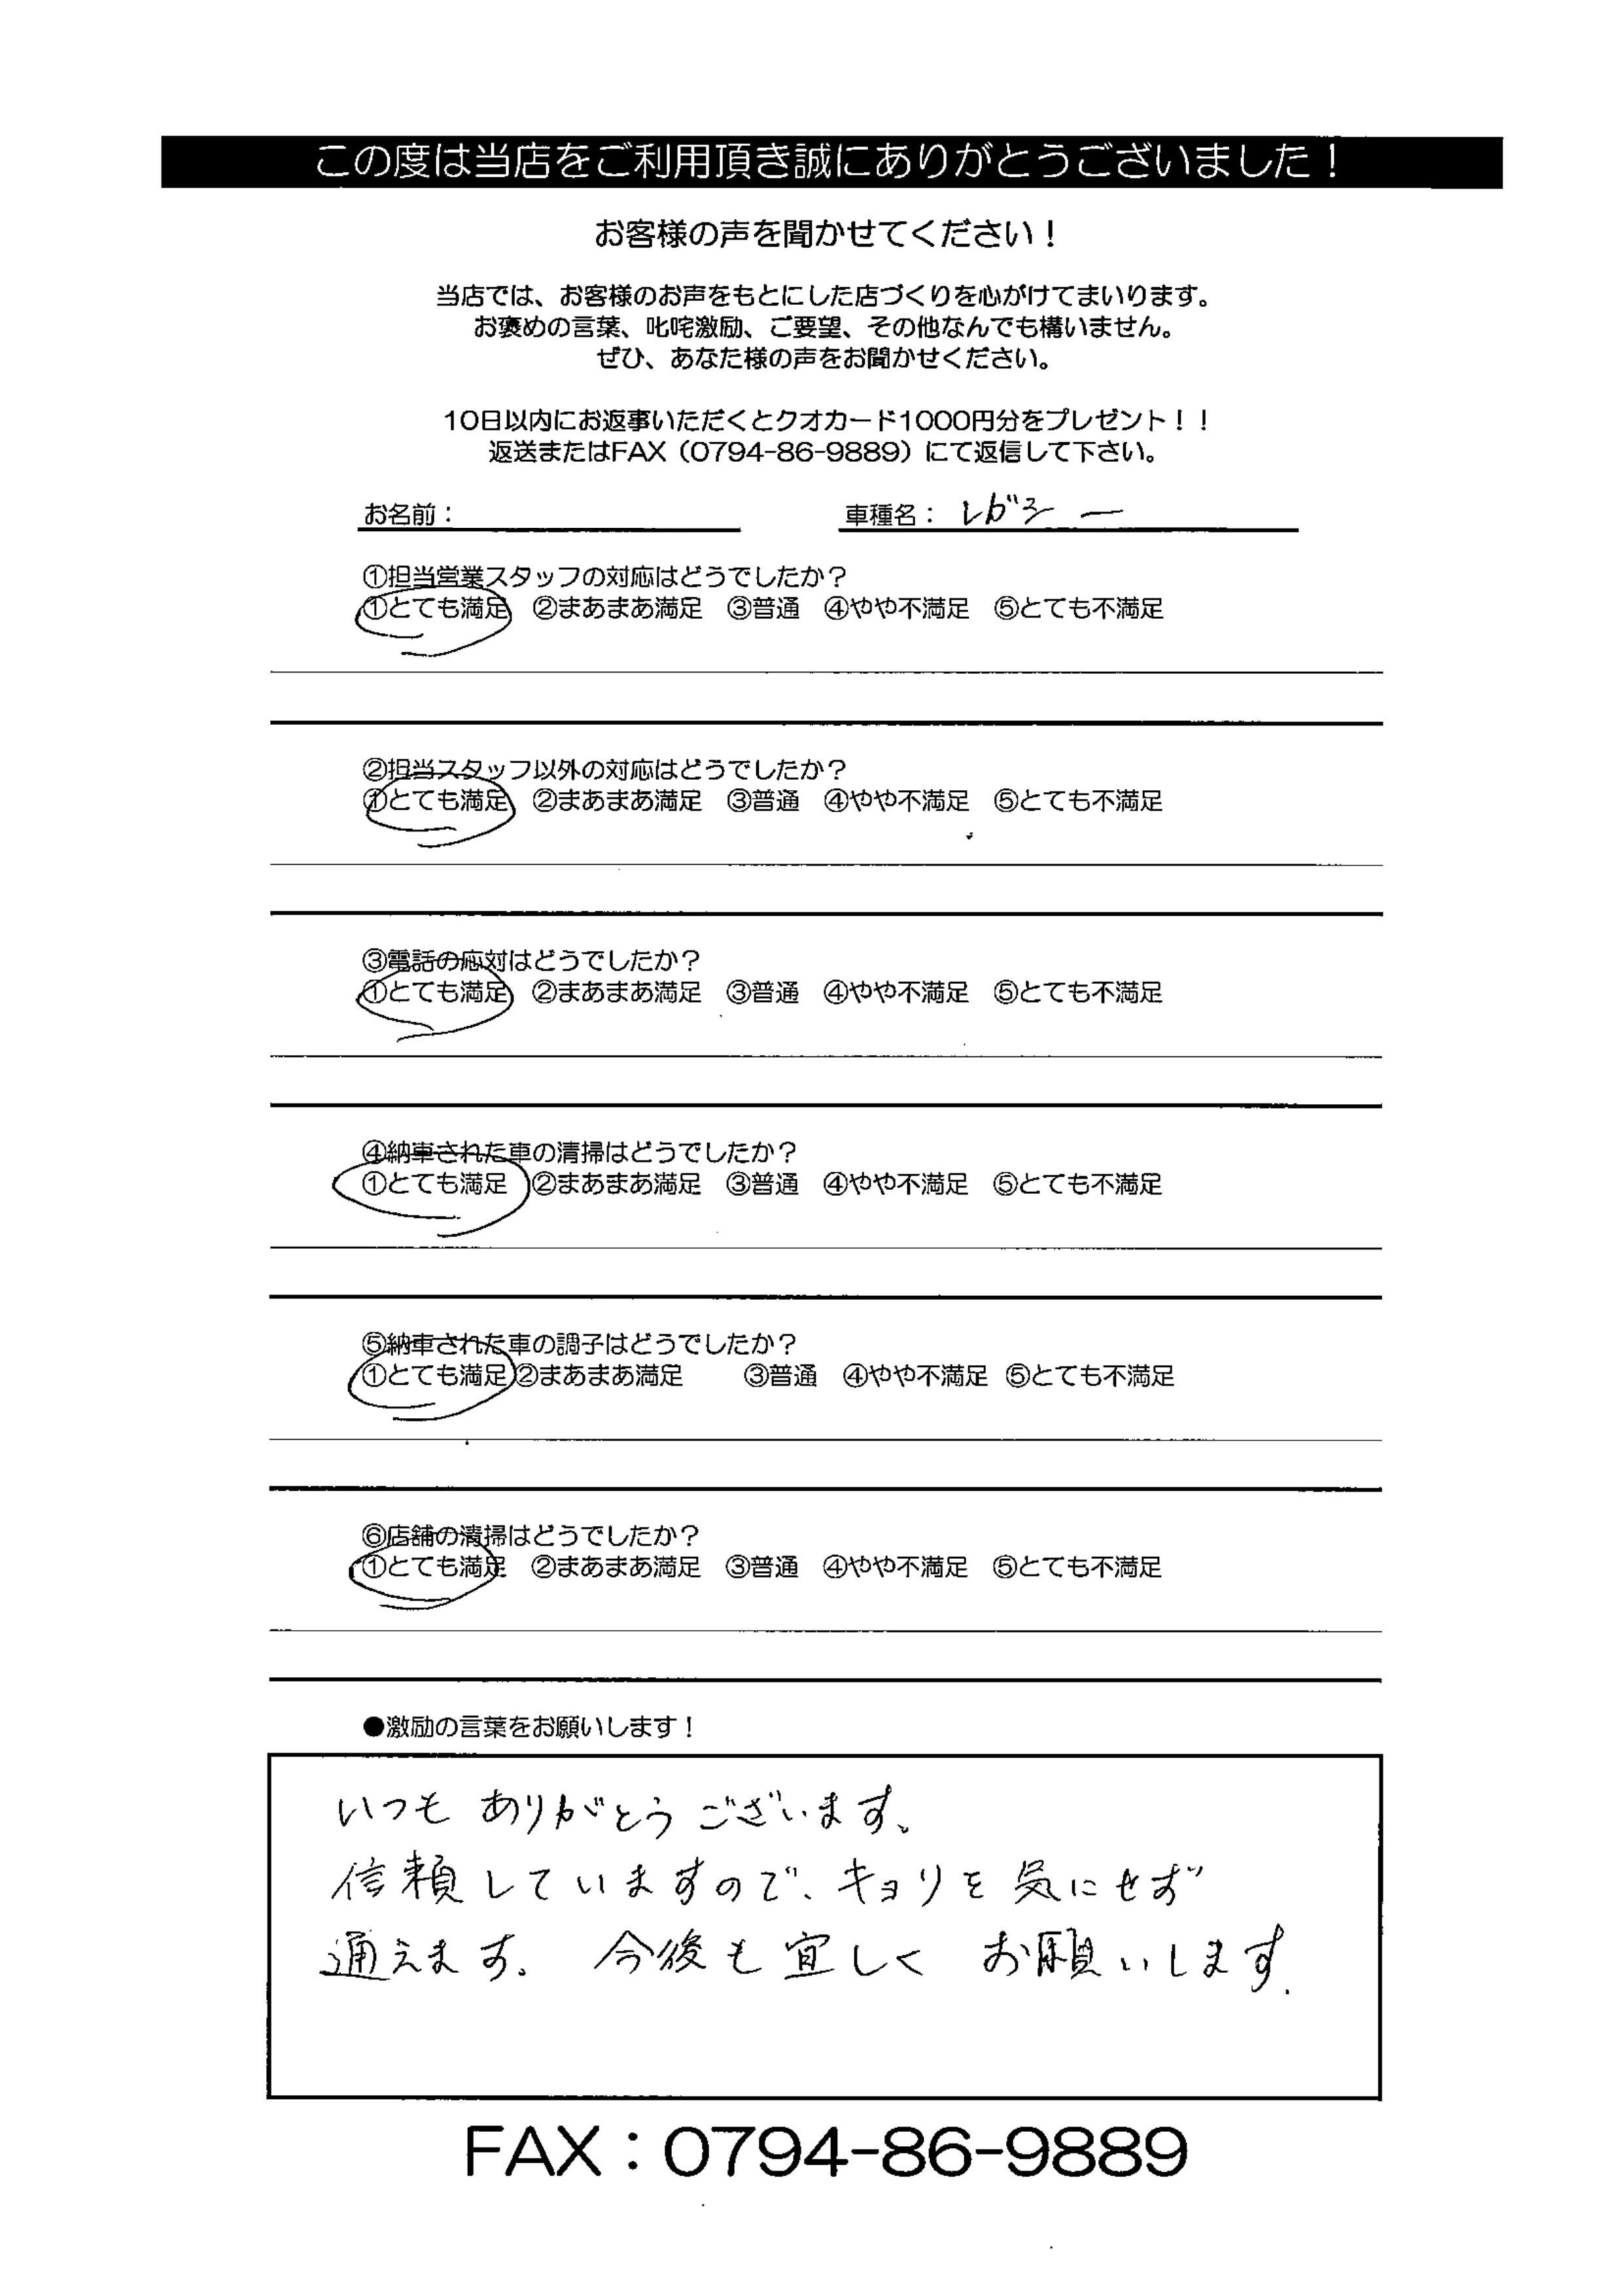 この度は当店をご利用頂き誠にありがとうございました！
お客様の声を聞かせてください！
当店では、お客様のお声をもとにした店づくりを心がけてまいります。
お褒めの言葉、叱咤激励、ご要望、その他なんでも構いません。
ぜひ、あなた様の声をお聞かせください。
10日以内にお返事いただくとクオカード1000円分をプレゼント！！
返送またはFAX（0794-86-9889）にて返信して下さい。
お名前： 車種名： レガシー
①担当営業スタッフの対応はどうでしたか？
①とても満足 ②まあまあ満足 ③普通 ④やや不満足 ⑤とても不満足
②担当スタッフ以外の対応はどうでしたか？
①とても満足 ②まあまあ満足 ③普通 ④やや不満足 ⑤とても不満足
③電話の応対はどうでしたか？
①とても満足 ②まあまあ満足 ③普通 ④やや不満足 ⑤とても不満足
④納車された車の清掃はどうでしたか？
①とても満足 ②まあまあ満足 ③普通 ④やや不満足 ⑤とても不満足
⑤納車された車の調子はどうでしたか？
①とても満足 ②まあまあ満足 ③普通 ④やや不満足 ⑤とても不満足
⑥店舗の清掃はどうでしたか？
①とても満足 ②まあまあ満足 ③普通 ④やや不満足 ⑤とても不満足
●激励の言葉をお願いします！
いつも ありがとう ございます。
信頼していますので、キョリを気にせず
通えます。 今後も宜しく お願いします.
FAX：0794-86-9889